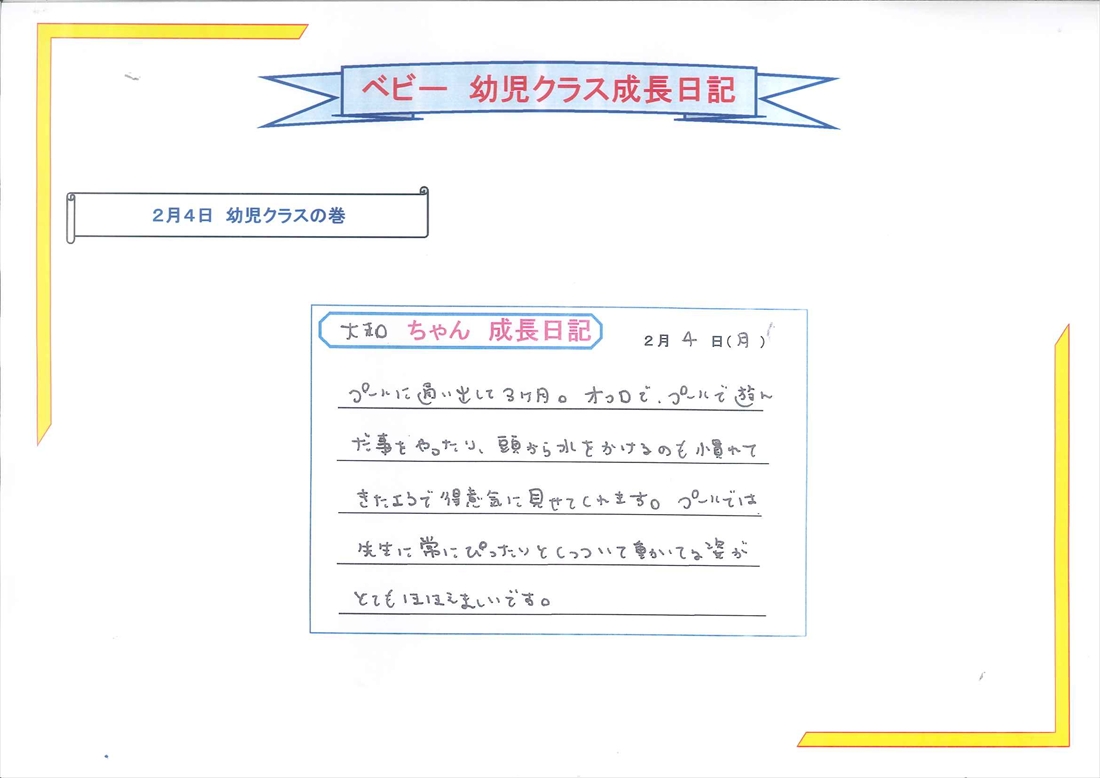 ベビー　幼児クラス成長日記
２月４日　幼児クラスの巻
大和 ちゃん　成長日記
２月 4 日(月)
プールに通い出して3ケ月。オフロで、プールで遊ん
だ事をやったり、頭から水をかけるのも慣れて
きたようで得意気に見せてくれます。プールでは
先生に常にぴったりとくっついて動いてる姿が
とてもほほえましいです。